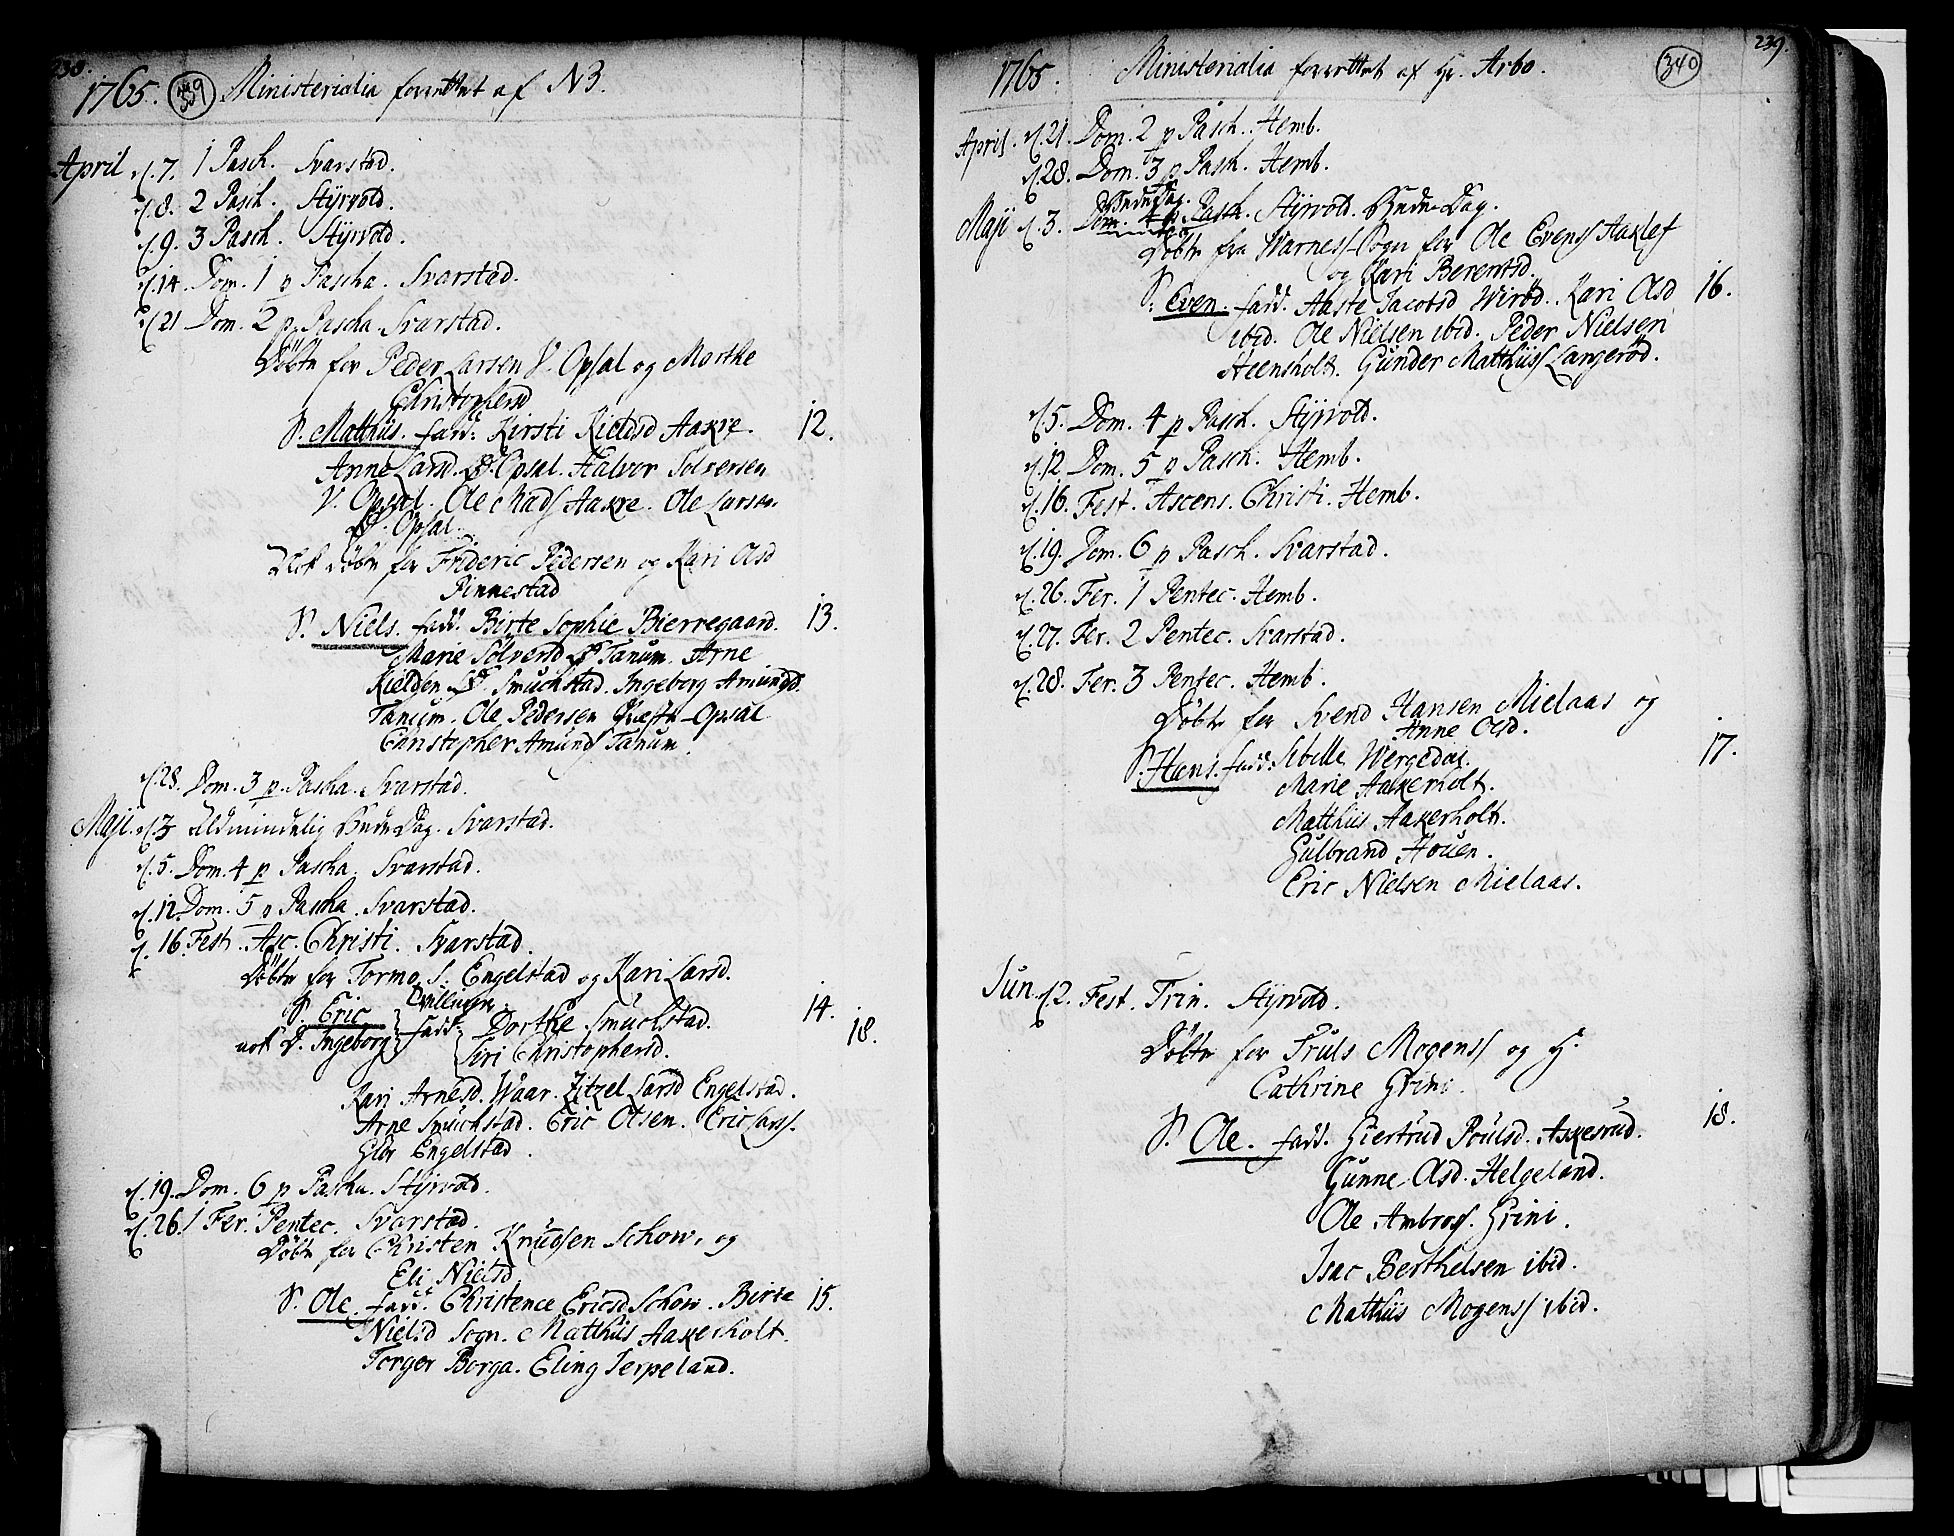 238.
1765. 339 Ministerialia forrettet af NB.
April d. 7. 1 Pasch. Svarstad.
d. 8. 2 Pasch. Styrvold.
d. 9. 3 Pasch. Styrvold.
d. 14. Dom. 1 p Pascha. Svarstad.
d. 21 Dom. 2 p. Pascha. Svarstad.
Döbte for Peder Larsen V. Opsal og Marthe
Christophersd
S. Matthiis. fadd: Kirsti Kieldsd Aakre. 12.
Anne Larsd. Ø. Opsal. Halvor Solversen
V. Opsal. Ole Mads Aakre. Ole Larsen.
Ø. Opsal.
Döbte for Frideric Pedersen og Kari Olsd
Pinnestad
S. Niels. fadd. Birte Sophie Bierregaard. 13.
Marie Sölversd Ø Tanum. Arne
Kieldsen Smuchstad. Ingeborg Amundsd.
Tanum. Ole Pedersen Opsal
Christopher Amunds Tanum.
d. 28. Dom. 3 p. Pascha. Svarstad.
Maji. d. 3 Aldmindelig Bededag. Svarstad.
d. 5. Dom. 4 p Pascha. Svarstad.
d. 12. Dom. 5 p Pascha. Svarstad.
d. 16. Fest. Asc. Christi. Svarstad.
Döbte for Tormo S. Engelstad og Kari Larsd.
S. Eric Tvillinger 14.
nok D. Ingeborg fadd: Dorthe Smuchstad. 18.
Siri Christophersd.
Kari Arnesd. Waar. Zitzel Larsd Engelstad.
Arne Smuchstad. Eric Olsen. Eric Larss.
Glör Engelstad.
d. 19. Dom. 6 p Pascha. Styrvold.
d. 26. 1 Fer. Pentec. Svarstad.
Döbte for Christen Knudsen Schow, og
Eli Nielsd
S. Ole. fadd. Christence Ericsd Schow. Birte 15.
Nielsd Sogn. Matthiis Aakerholt.
Torger Borga. Eling Jerpeland.
239.
1765. Ministerialia forrettet af Hr. Arbo. 340
April. d. 21. Dom. 2 p Pasch. Hemb.
d. 28. Dom. 3 p Pasch. Hemb.
Bededag.
Maji d. 3. Dom. 4 p Pasch. Styrvold. Bededag.
Döbte fra Warness Sogn for Ole Evens Aaklef
og Kari Berentsd.
S. Even. fadd. Aaste Jacobsd Wiröd. Kari Olsd 16.
ibid. Ole Nielsen ibid. Peder Nielsen
Steensholt. Gunder Matthiis Langeröd.
d. 5. Dom. 4 p Pasch. Styrvold.
d. 12 Dom. 5 p Pasch. Hemb.
d. 16. Fest. Ascens. Christi. Hemb.
d. 19. Dom. 6 p Pasch. Svarstad.
d. 26. Fer. 1 Pentec. Hemb.
d. 27. Fer. 2 Pentec. Svarstad.
d. 28. Fer. 3 Pentec. Hemb.
Döbte for Svend Hansen Mielaas og
Anne Olsd.
S. Hans. fadd: Sibille Wergedal. 17.
Marie Aakerholt.
Matthiis Aakerholt.
Gulbrand Houen.
Eric Nielsen Mielaas.
Jun. d. 2. Fest. Trin. Styrvold.
Döbte for Truls Mogenss og H.
Cathrine Grini.
S. Ole. fadd. Giertrud Poulsd. Askesrud. 18.
Gunne Olsd. Helgeland.
Ole Ambross. Grini.
Isac Berthelsen ibid.
Matthiis Mogenss ibid.